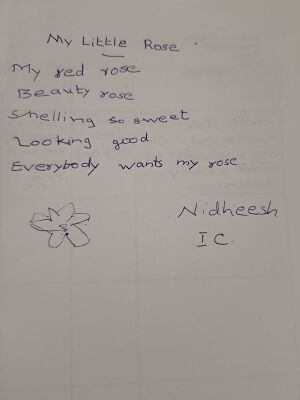 My Little Rose.
My red rose
Beauty rose
Smelling so sweet
Looking good
Everybody wants my rose.
Nidheesh
I C.